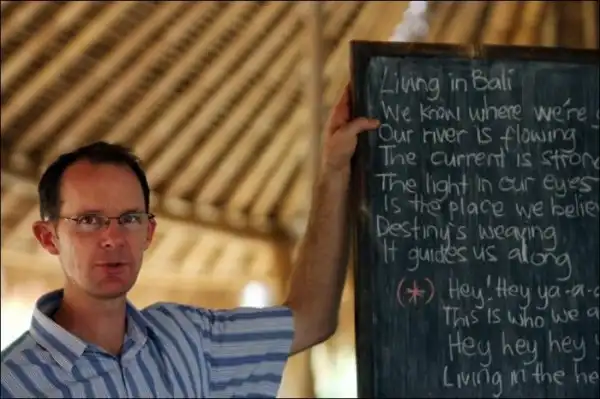 Living in Bali
We know where we're
Our river is flowing
The current is stron
The light in our eyes
Is the place we belie
Destiny's weaving
It guides us along
(*) Hey! Hey ya-a-a
This is who we a
Hey hey hey y
Living in the he